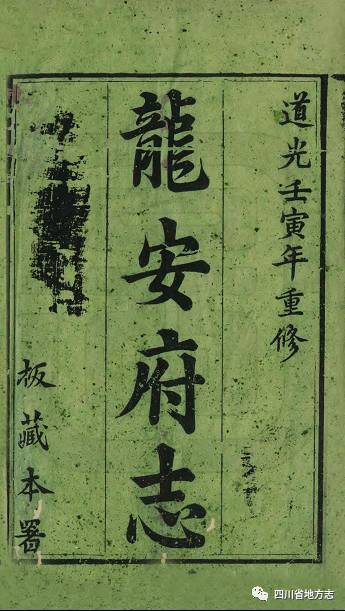 道光壬寅年重修
龍安府志
板藏本署
四川省地方志